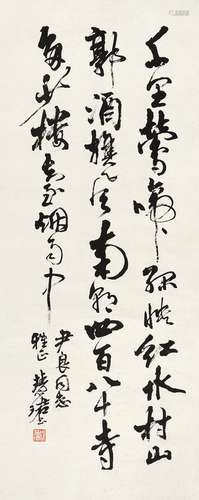 千里鶯啼绿映红水村山
郭酒旗风南朝四百八十寺
多少樓臺烟雨中
尹良同志
雅正 慧珺